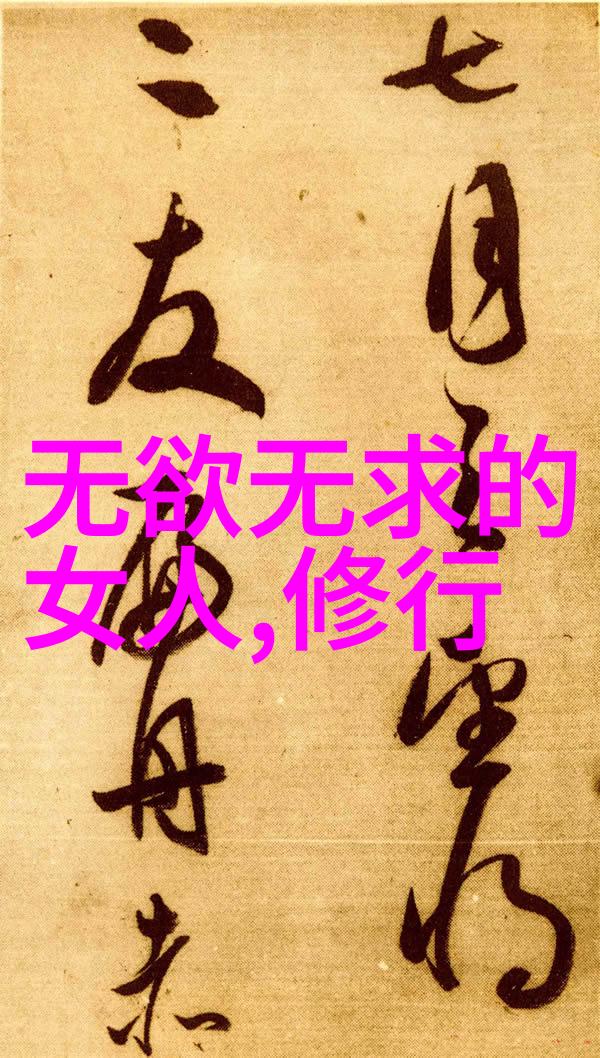 七月望
二友舟赤
无欲无求的
女人,修行